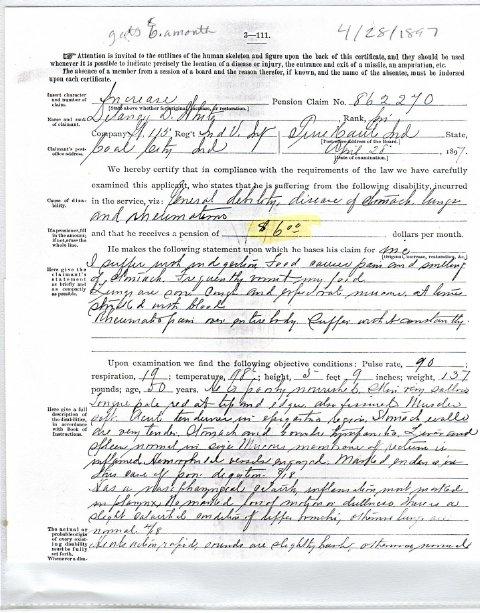 gets 6. a month
4/28/1897
3—111.
Attention is invited to the outlines of the human skeleton and figure upon the back of this certificate, and they should be used
whenever it is possible to indicate precisely the location of a disease or injury, the entrance and exit of a missile, an amputation, etc.
The absence of a member from a session of a board and the reason therefor, if known, and the name of the absentee, must be indorsed
upon each certificate.
Insert character and number of claim.
Increase Pension Claim No. 862270
[State above whether for original, increase, or restoration.]
Name and rank of claimant.
D. Rank, Pri
Company H, 115 Reg't Ind V. Inf Terre Haute Ind State,
[Post-office address of the Board.]
Claimant's post-office address.
Coal City Ind April 28 , 1897.
[Date of examination.]
We hereby certify that in compliance with the requirements of the law we have carefully
examined this applicant, who states that he is suffering from the following disability, incurred
Cause of disability.
in the service, viz: General debility, disease of stomach, lungs
and rheumatism
If a pensioner, fill in the amount; if not, erase the whole line.
and that he receives a pension of $6.00 dollars per month.
He makes the following statement upon which he bases his claim for inc
[Original, increase, restoration, &c.]
Here give the claimant's statement as briefly and as compactly as possible.
I suffer with indigestion food causes pain and
of stomach. Frequently vomit my food.
Lungs are sore. Cough and at times
with blood
Rheumatic pain over entire body. Suffer with it constantly.
Upon examination we find the following objective conditions: Pulse rate, 90;
respiration, 19; temperature, 98½; height, 5 feet 9 inches; weight, 137
pounds; age, 50 years. He is poorly nourished. Skin very sallow
Here give a full description of the disabilities, in accordance with Book of Instructions.
Tongue pale red at tip and edges, also fissured. Muscles
soft. tenderness in epigastric region. Stomach walls
are very tender. Stomach and bowels tympanitic. Liver and
spleen normal in size Mucous membrane of rectum is
inflamed. Hemorrhoidal vessels enlarged. Marked evidence in
this case of 8/18
Has a naso pharyngeal catarrh, inflammation most marked
in pharynx. No marked loss of motion or dullness. There is a
slight catarrhal condition of upper bronchi, otherwise lungs are
normal 4/18
The actual or probable origin of every existing disability must be fully set forth. Whenever a dis-
Heart action, rapid, sounds are slightly harsh, otherwise normal